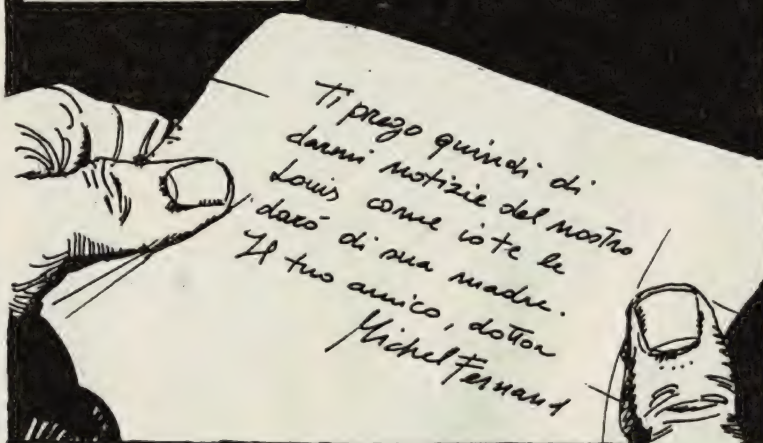 Ti prego quindi di
darmi notizie del nostro
Louis come io te le
darò di sua madre.
Il tuo amico, dottor
Michel Fernand